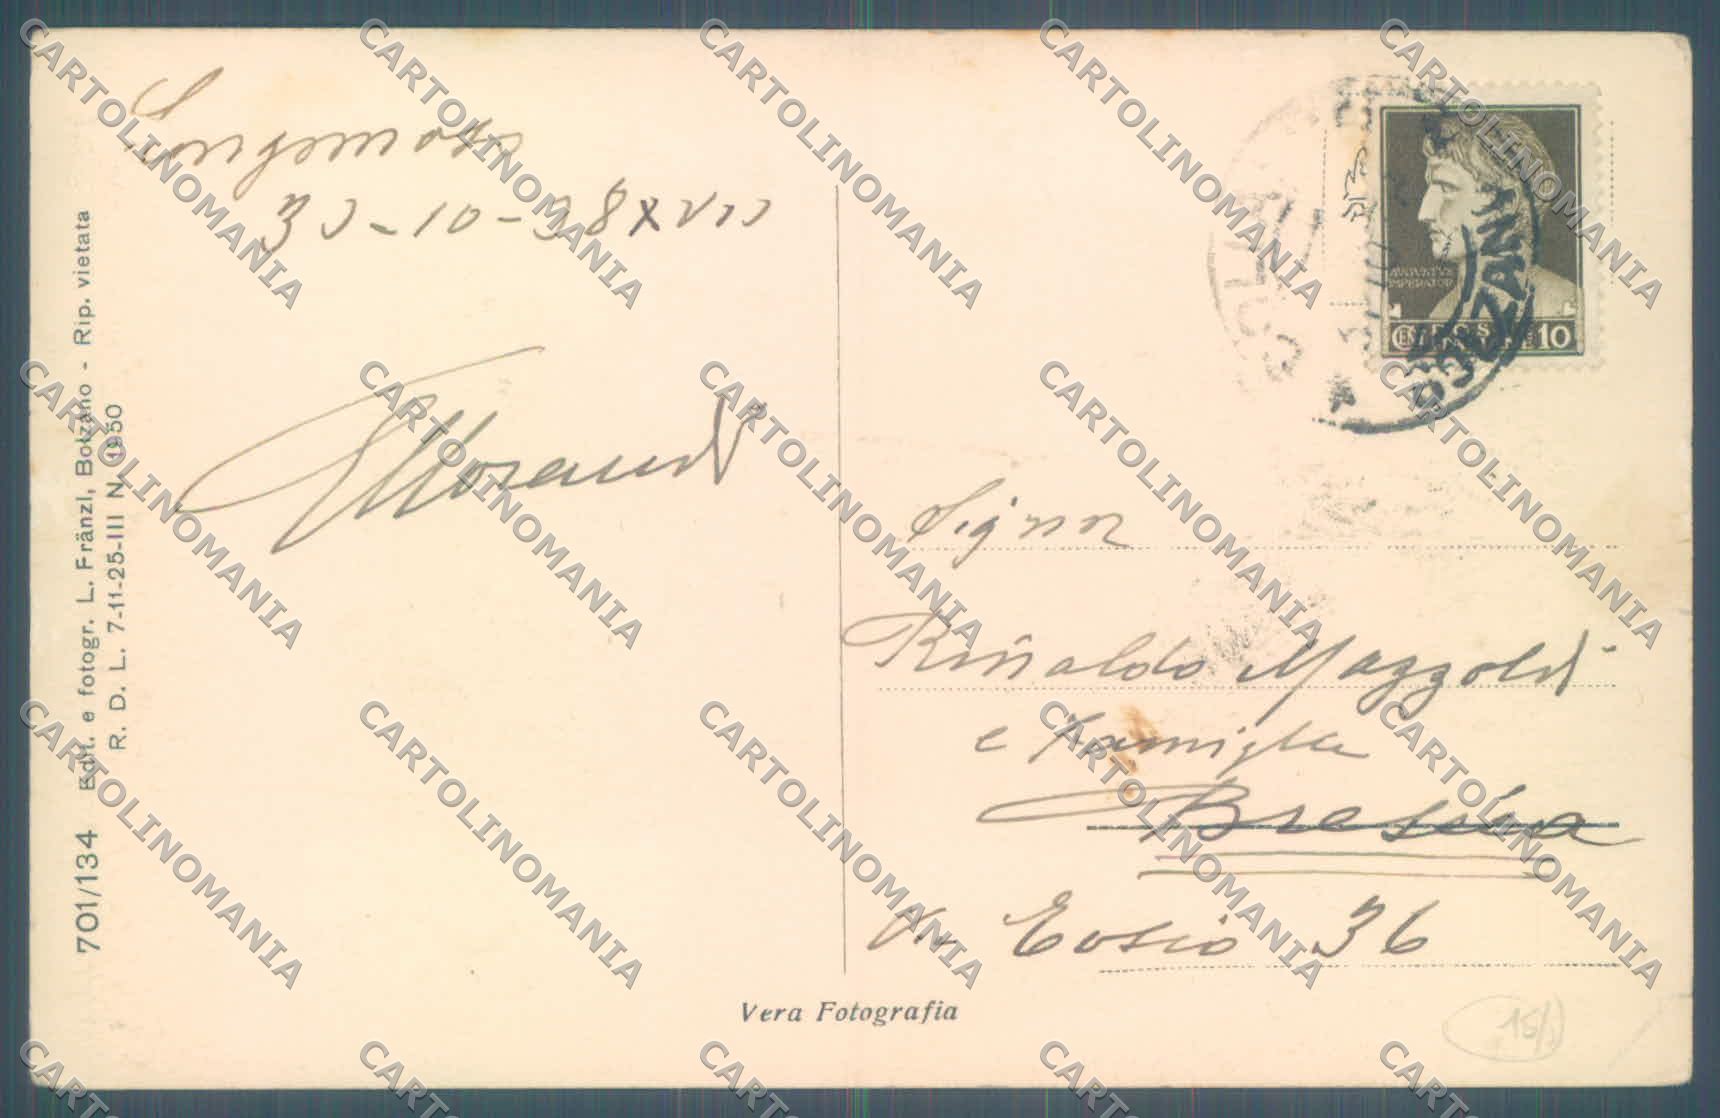 30-10-38 XVII
Morandi
Signor
Rinaldo Mazzoldi
e famiglia
Brescia
Via Tosio 36
Edit. e fotogr. L. Fränzl, Bolzano - Rip. vietata
R. D. L. 7-11-25-III N. 1950
701/134
Vera Fotografia
AVGVSTVS
IMPERATOR
POSTE ITALIANE
CENT 10
BOLZANO
15/
CARTOLINOMANIA